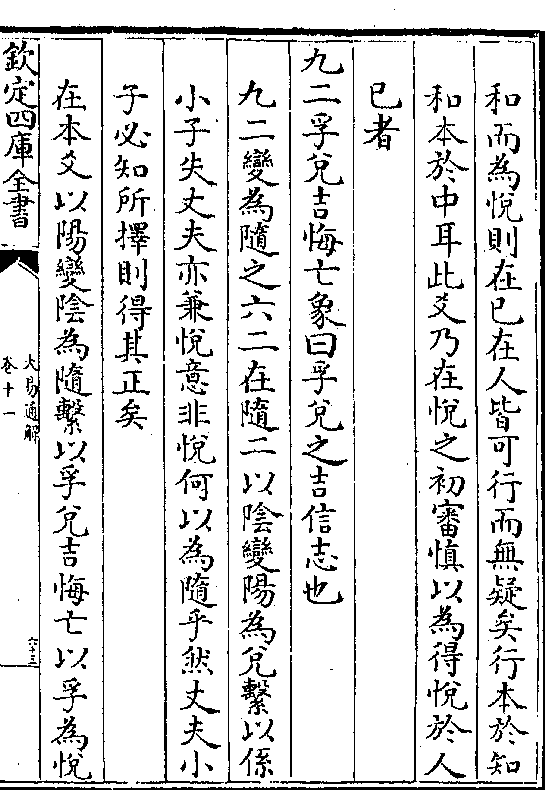 和而為悅則在已在人皆可行而無疑矣行本於知
和本於中耳此爻乃在悅之初審慎以為得悅於人
已者
九二孚兊吉悔亡象曰孚兊之吉信志也
九二變為隨之六二在隨二以陰變陽為兊繫以係
小子失丈夫亦兼悅意非悅何以為隨乎然丈夫小
子必知所擇則得其正矣
在本爻以陽變陰為隨繫以孚兊吉悔亡以孚為悅
欽定四庫全書
大易通解
卷十一
六十三